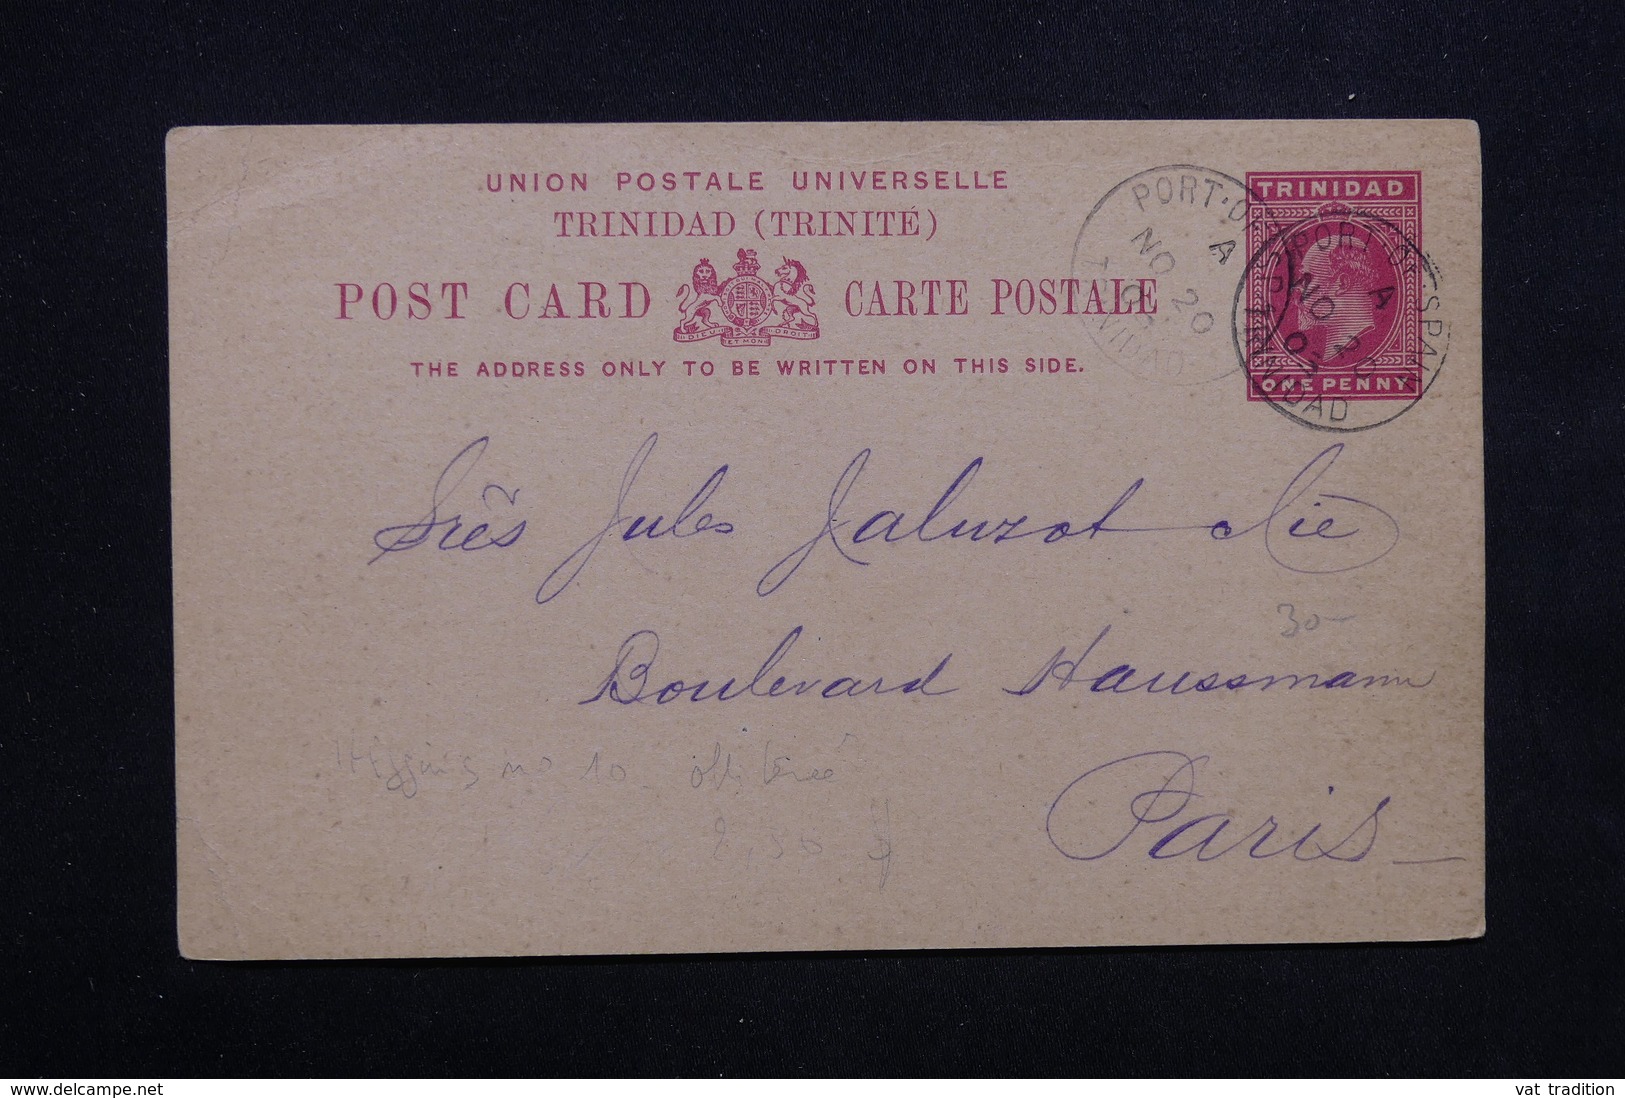 UNION POSTALE UNIVERSELLE
TRINIDAD (TRINITÉ)
POST CARD CARTE POSTALE
DIEU ET MON DROIT
THE ADDRESS ONLY TO BE WRITTEN ON THIS SIDE.
TRINIDAD
ONE PENNY
PORT·OF
A
NO 20
PORT·OF·SPAIN
A
NO 20
07
TRINIDAD
Jules Jaluzot & Cie
30-
Boulevard Haussmann
Higgins no 10 oblitérée
Paris
2,50
www.delcampe.net
vat tradition